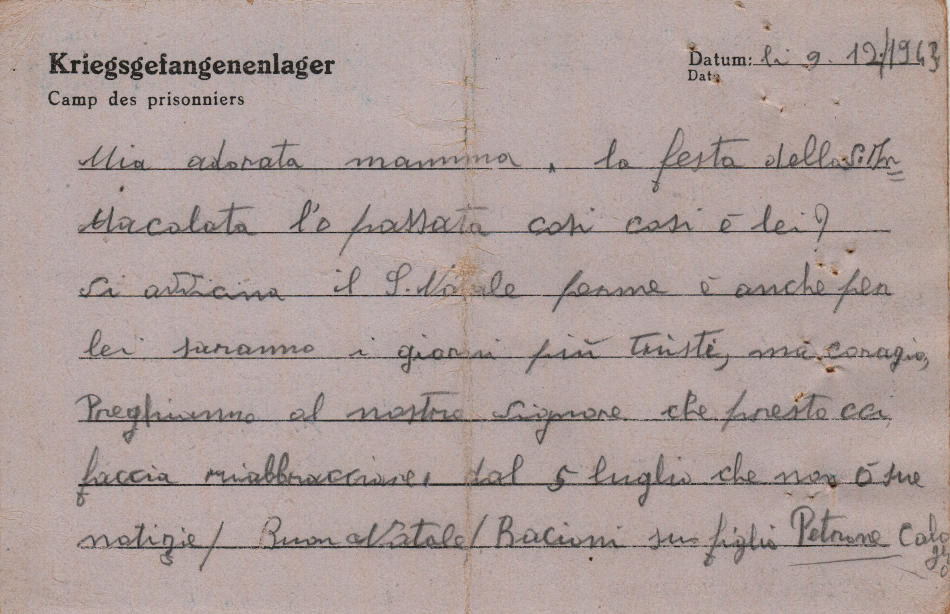 Kriegsgefangenenlager
Camp des prisonniers
Datum: li 9. 12/1943
Data
Mia adorata mamma, la festa della S. Im
Macolata l'o passata cosi cosi e lei?
Si avvicina il S. Natale perme e anche per
lei saranno i giorni più tristi, ma coragio,
Preghiamo al nostro Signore che presto cci
faccia riabbracciare, dal 5 luglio che non ò sue
notizie/ Buon Natale/ Bacioni suo figlio Petrone Calogero